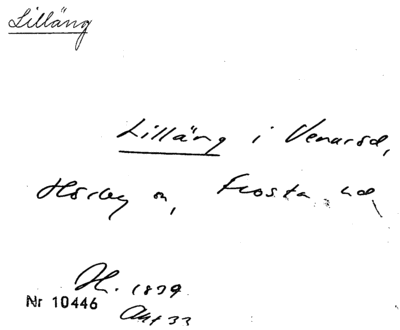 Lilläng
Lilläng i Venarød,
Hörby sn, Frosta hd
H. 1829
Nr 10446
Akt 33